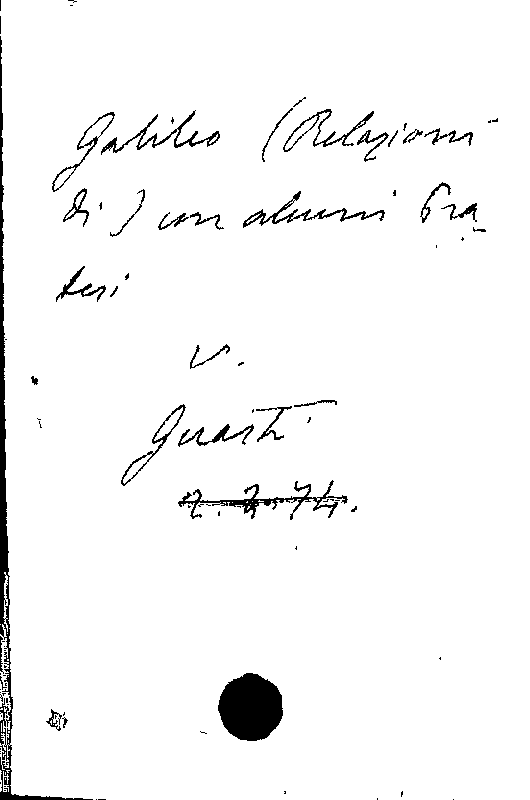 Galileo (Relazioni
di) con alcuni Pra-
tesi
v.
Guasti
2. 2. 74.